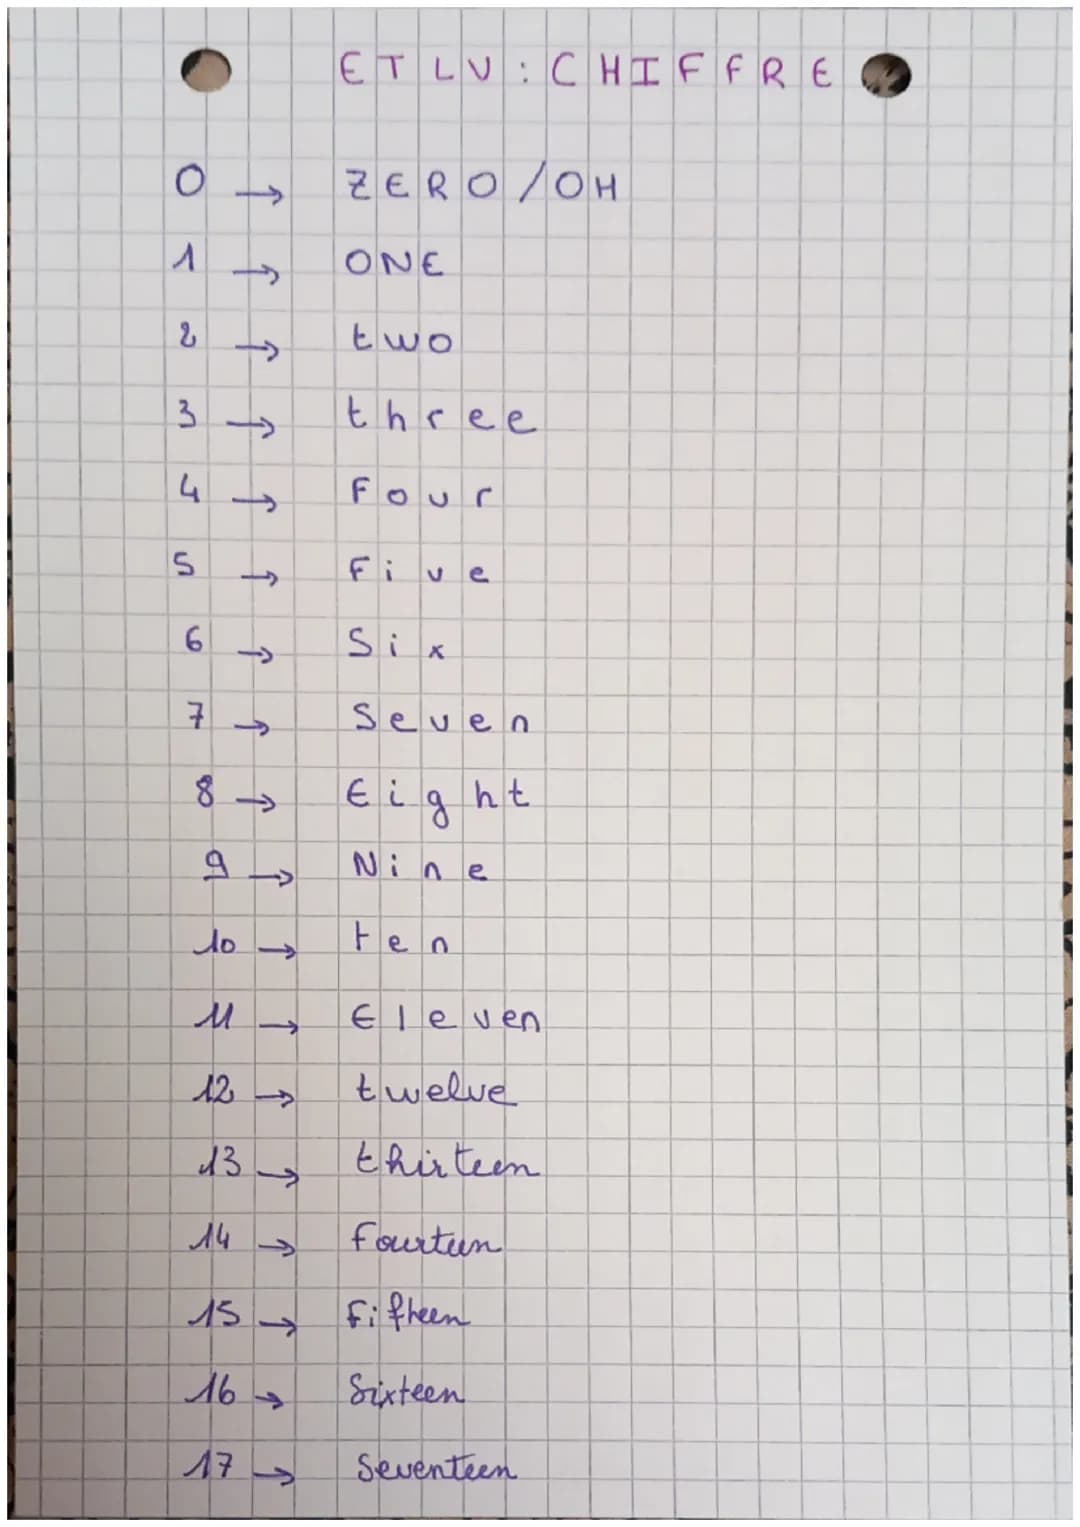 ETLV : CHIFFRE
0 → ZERO/OH
1 → ONE
2 → two
3 → three
4 → Four
5 → Five
6 → Six
7 → Seven
8 → Eight
9 → Nine
10 → ten
11 → Eleven
12 → twelve
13 → thirteen
14 → Fourteen
15 → Fifteen
16 → Sixteen
17 → Seventeen